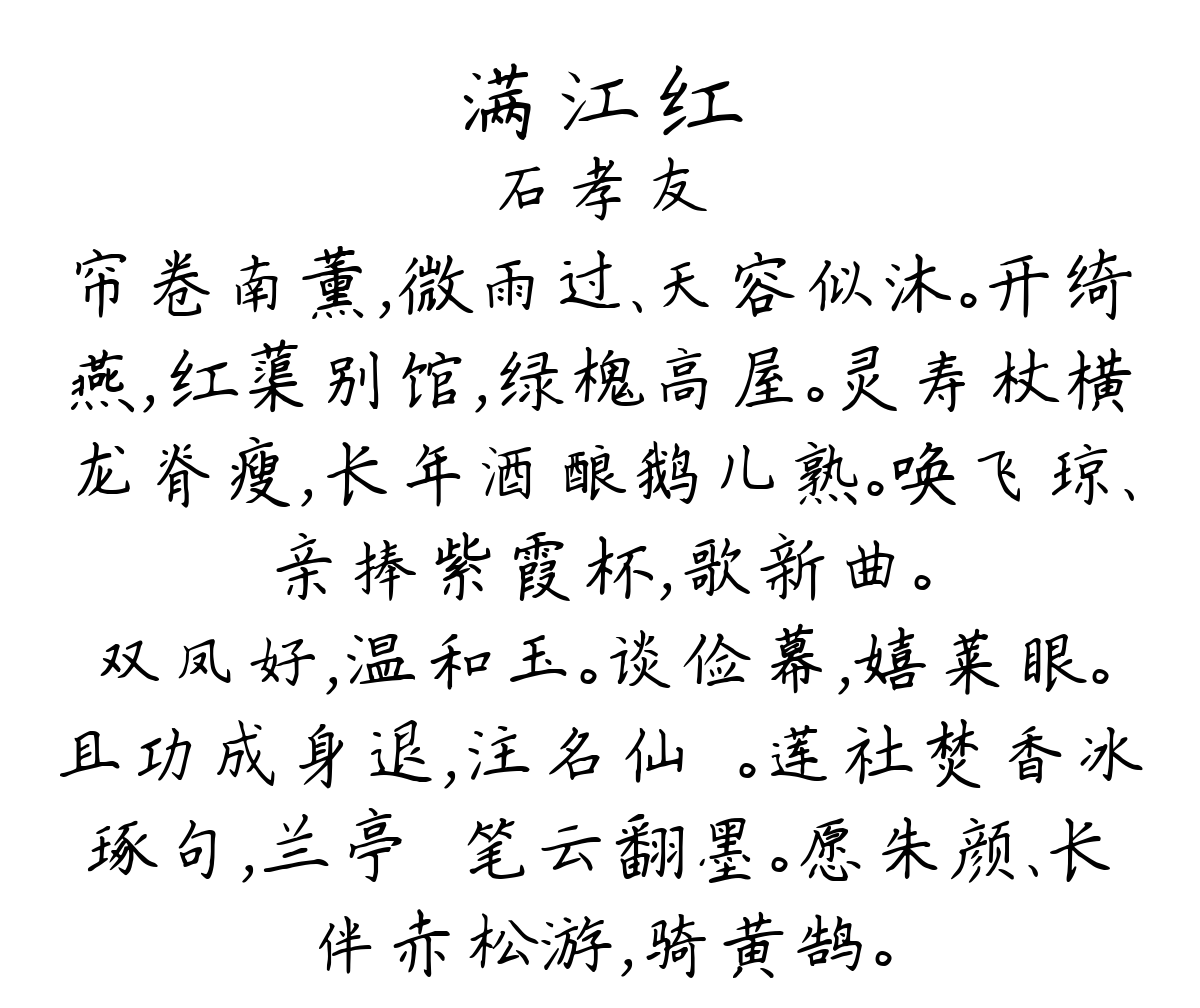 满江红
石孝友
帘卷南薰,微雨过、天容似沐。开绮
燕,红蕖别馆,绿槐高屋。灵寿杖横
龙脊瘦,长年酒酿鹅儿熟。唤飞琼、
亲捧紫霞杯,歌新曲。
双凤好,温和玉。谈俭幕,嬉莱眼。
且功成身退,注名仙 。莲社焚香冰
琢句,兰亭 笔云翻墨。愿朱颜、长
伴赤松游,骑黄鹄。